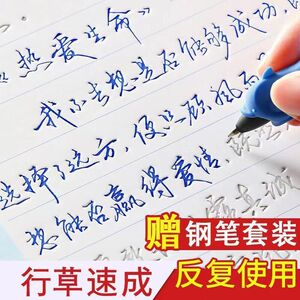 《热爱生命》
我不去想是否能够成功，
选择了远方，便只顾风雨
想能否赢得爱情，
赠 钢笔套装
行草速成 反复使用